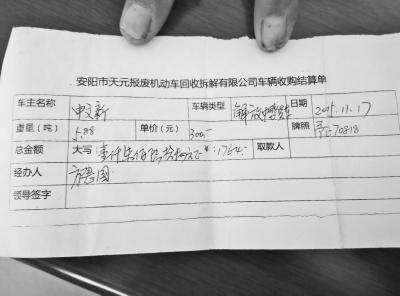 安阳市天元报废机动车回收拆解有限公司车辆收购结算单
车主名称 申文新 车辆类型 解放 日期 2015.11.17
重量（吨） 5.88 单价（元） 300 牌照 70818
总金额 大写：壹仟柒佰陆拾 ¥：1764 取款人
经办人
领导签字